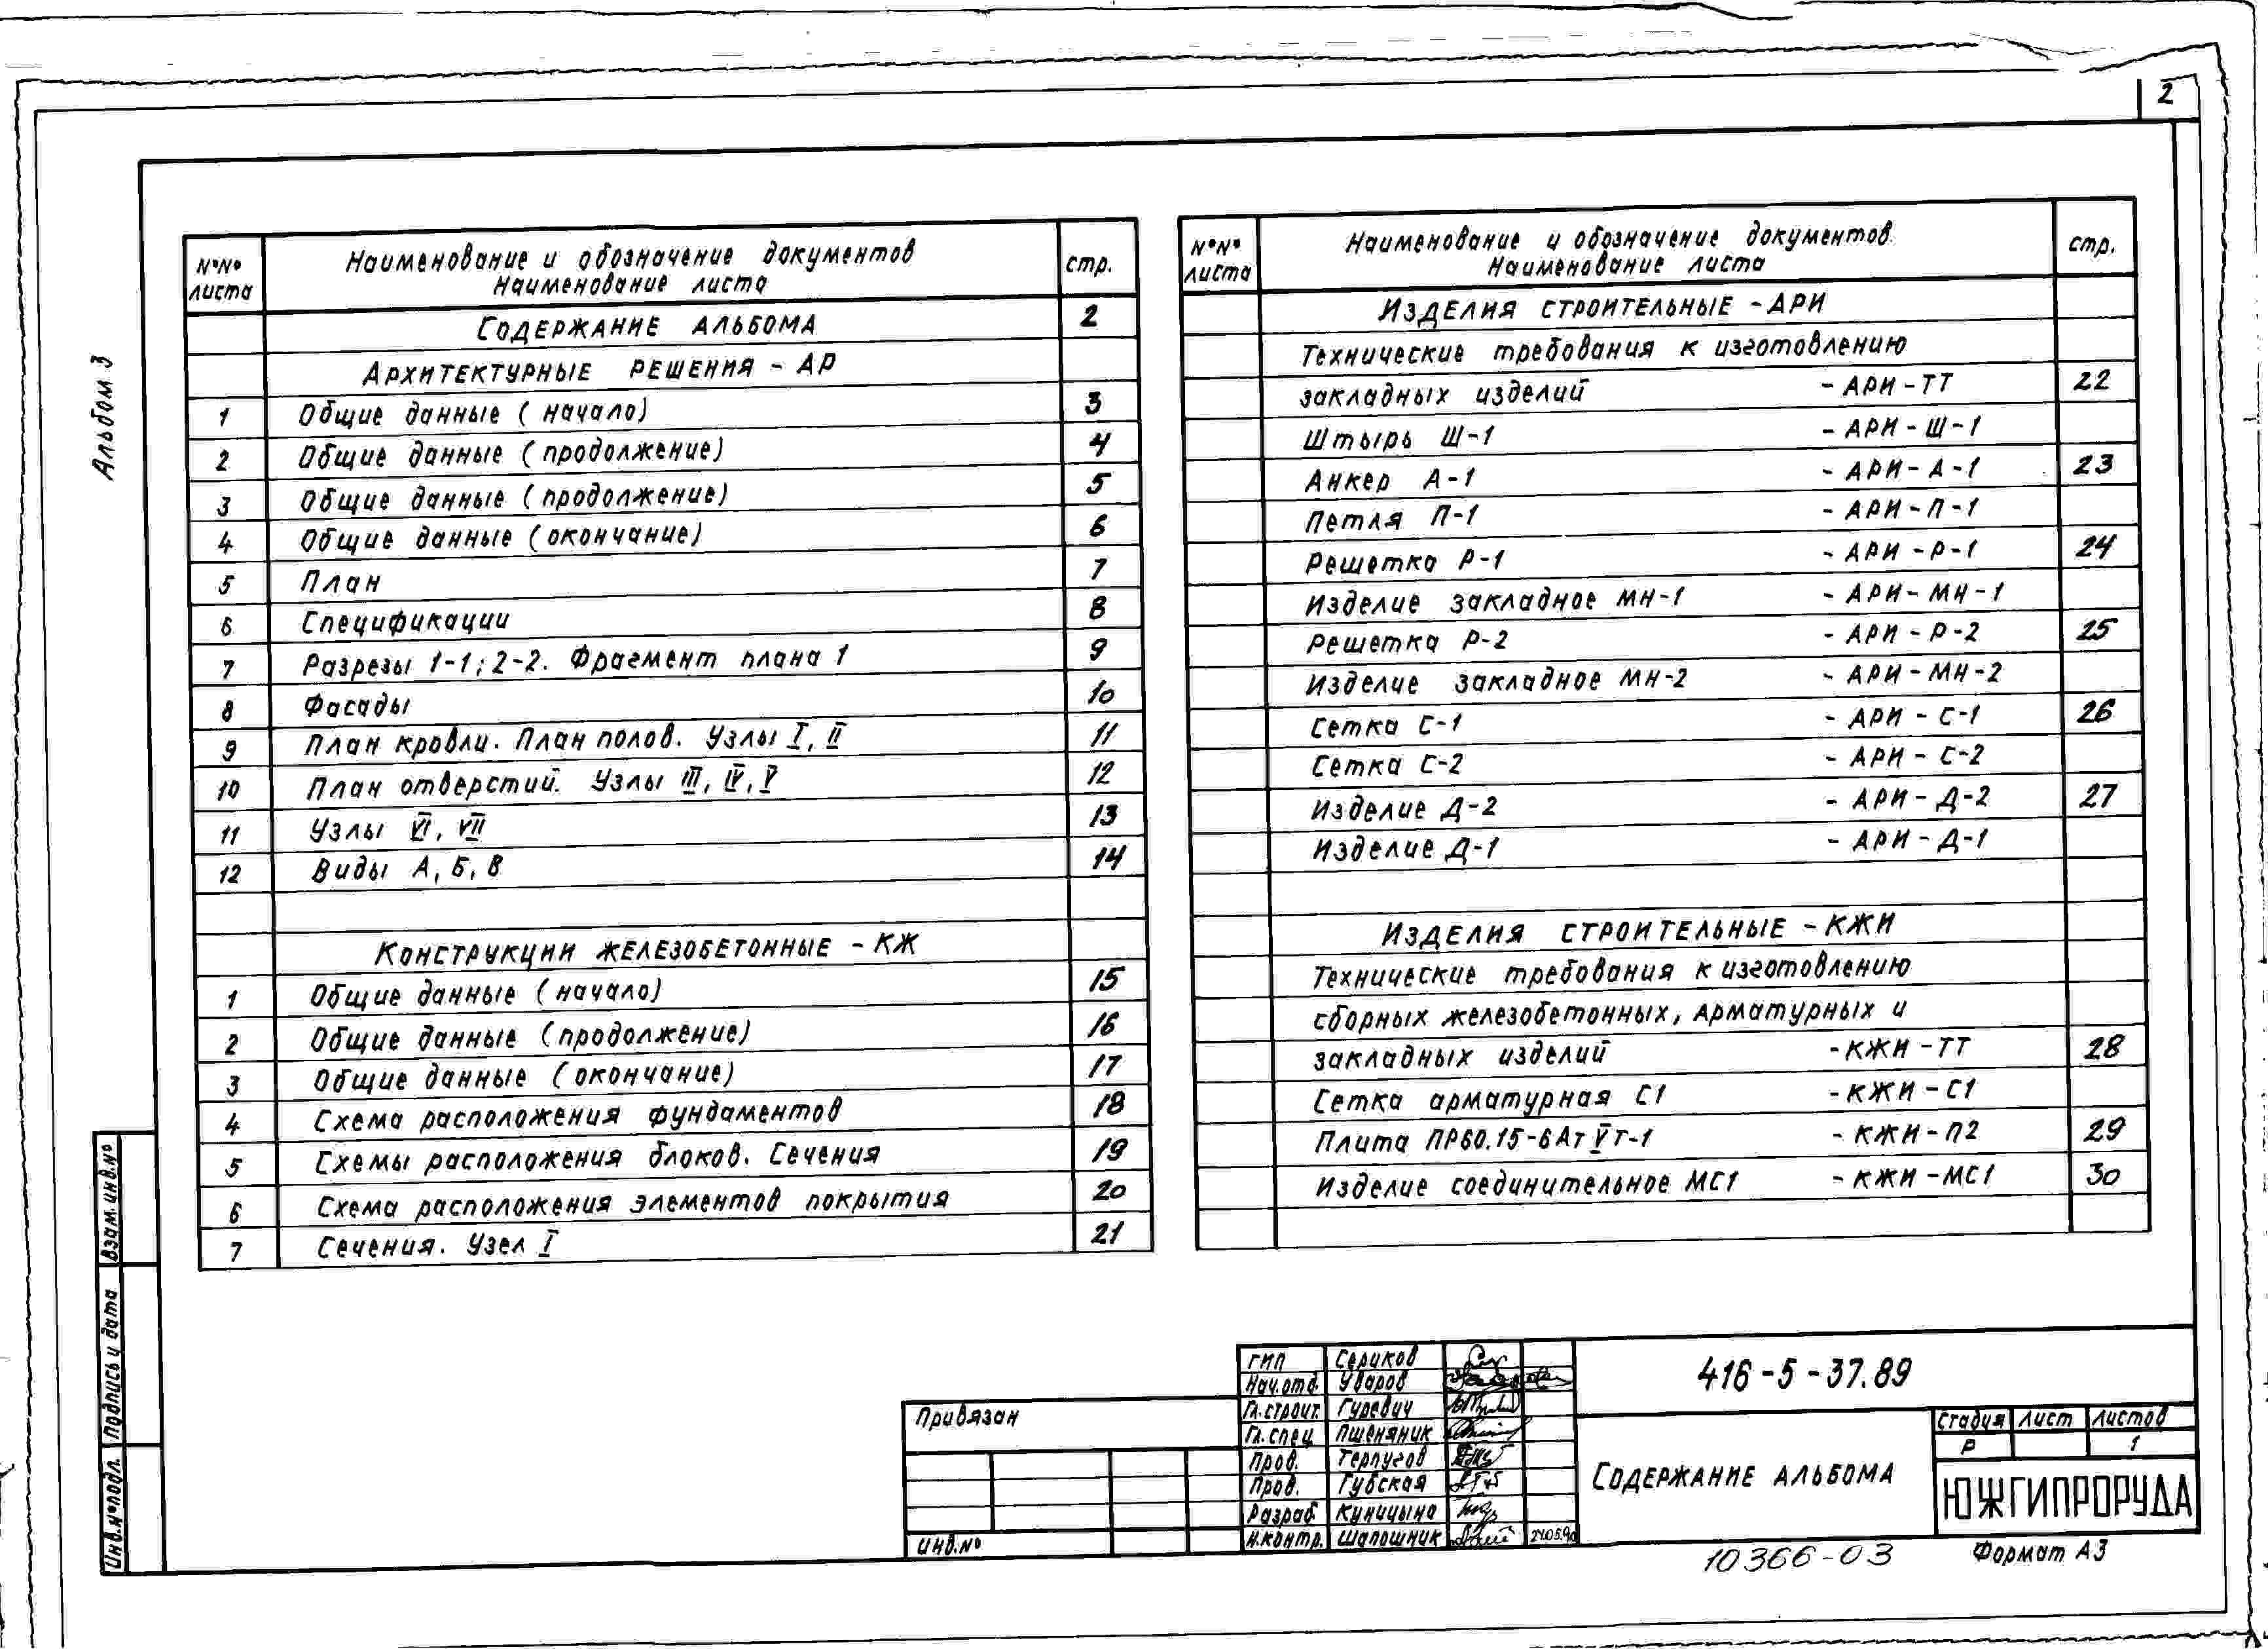 2
Альбом 3
N°N° листа
Наименование и обозначение документов
Наименование листа
стр.
Содержание альбома 2
Архитектурные решения - АР
1 Общие данные (начало) 3
2 Общие данные (продолжение) 4
3 Общие данные (продолжение) 5
4 Общие данные (окончание) 6
5 План 7
6 Спецификации 8
7 Разрезы 1-1; 2-2. Фрагмент плана 1 9
8 Фасады 10
9 План кровли. План полов. Узлы I, II 11
10 План отверстий. Узлы III, IV, V 12
11 Узлы VI, VII 13
12 Виды А, Б, В 14
Конструкции железобетонные - КЖ
1 Общие данные (начало) 15
2 Общие данные (продолжение) 16
3 Общие данные (окончание) 17
4 Схема расположения фундаментов 18
5 Схемы расположения блоков. Сечения 19
6 Схема расположения элементов покрытия 20
7 Сечения. Узел I 21
N°N° листа
Наименование и обозначение документов.
Наименование листа
стр.
Изделия строительные - АРИ
Технические требования к изготовлению
закладных изделий - АРИ - ТТ 22
Штырь Ш-1 - АРИ - Ш - 1
Анкер А-1 - АРИ - А - 1 23
Петля П-1 - АРИ - П - 1
Решетка Р-1 - АРИ - Р - 1 24
Изделие закладное МН-1 - АРИ - МН - 1
Решетка Р-2 - АРИ - Р - 2 25
Изделие закладное МН-2 - АРИ - МН - 2
Сетка С-1 - АРИ - С-1 26
Сетка С-2 - АРИ - С-2
Изделие Д-2 - АРИ - Д-2 27
Изделие Д-1 - АРИ - Д-1
Изделия строительные - КЖИ
Технические требования к изготовлению
сборных железобетонных, арматурных и
закладных изделий - КЖИ - ТТ 28
Сетка арматурная С1 - КЖИ - С1
Плита ПР60.15-6АтVт-1 - КЖИ - П2 29
Изделие соединительное МС1 - КЖИ - МС1 30
Взам. инв. N°
Подпись и дата
Инв. N° подл.
Привязан
Инв. N°
ГИП Сериков
Нач. отд. Уваров
Гл. строит. Гуревич
Гл. спец Пшеняник
Пров. Терпугов
Пров. Губская
Разраб. Куницына
Н.контр. Шапошник 24.05.90
416-5-37.89
Содержание альбома
Стадия Лист Листов
Р 1
ЮЖГИПРОРУДА
10366-03
Формат А3